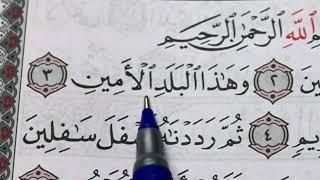 ٱللَّهِ ٱلرَّحْمَٰنِ ٱلرَّحِيمِ
٢ وَهَٰذَا ٱلْبَلَدِ ٱلْأَمِينِ ٣
٤ ثُمَّ رَدَدْنَٰهُ أَسْفَلَ سَٰفِلِينَ